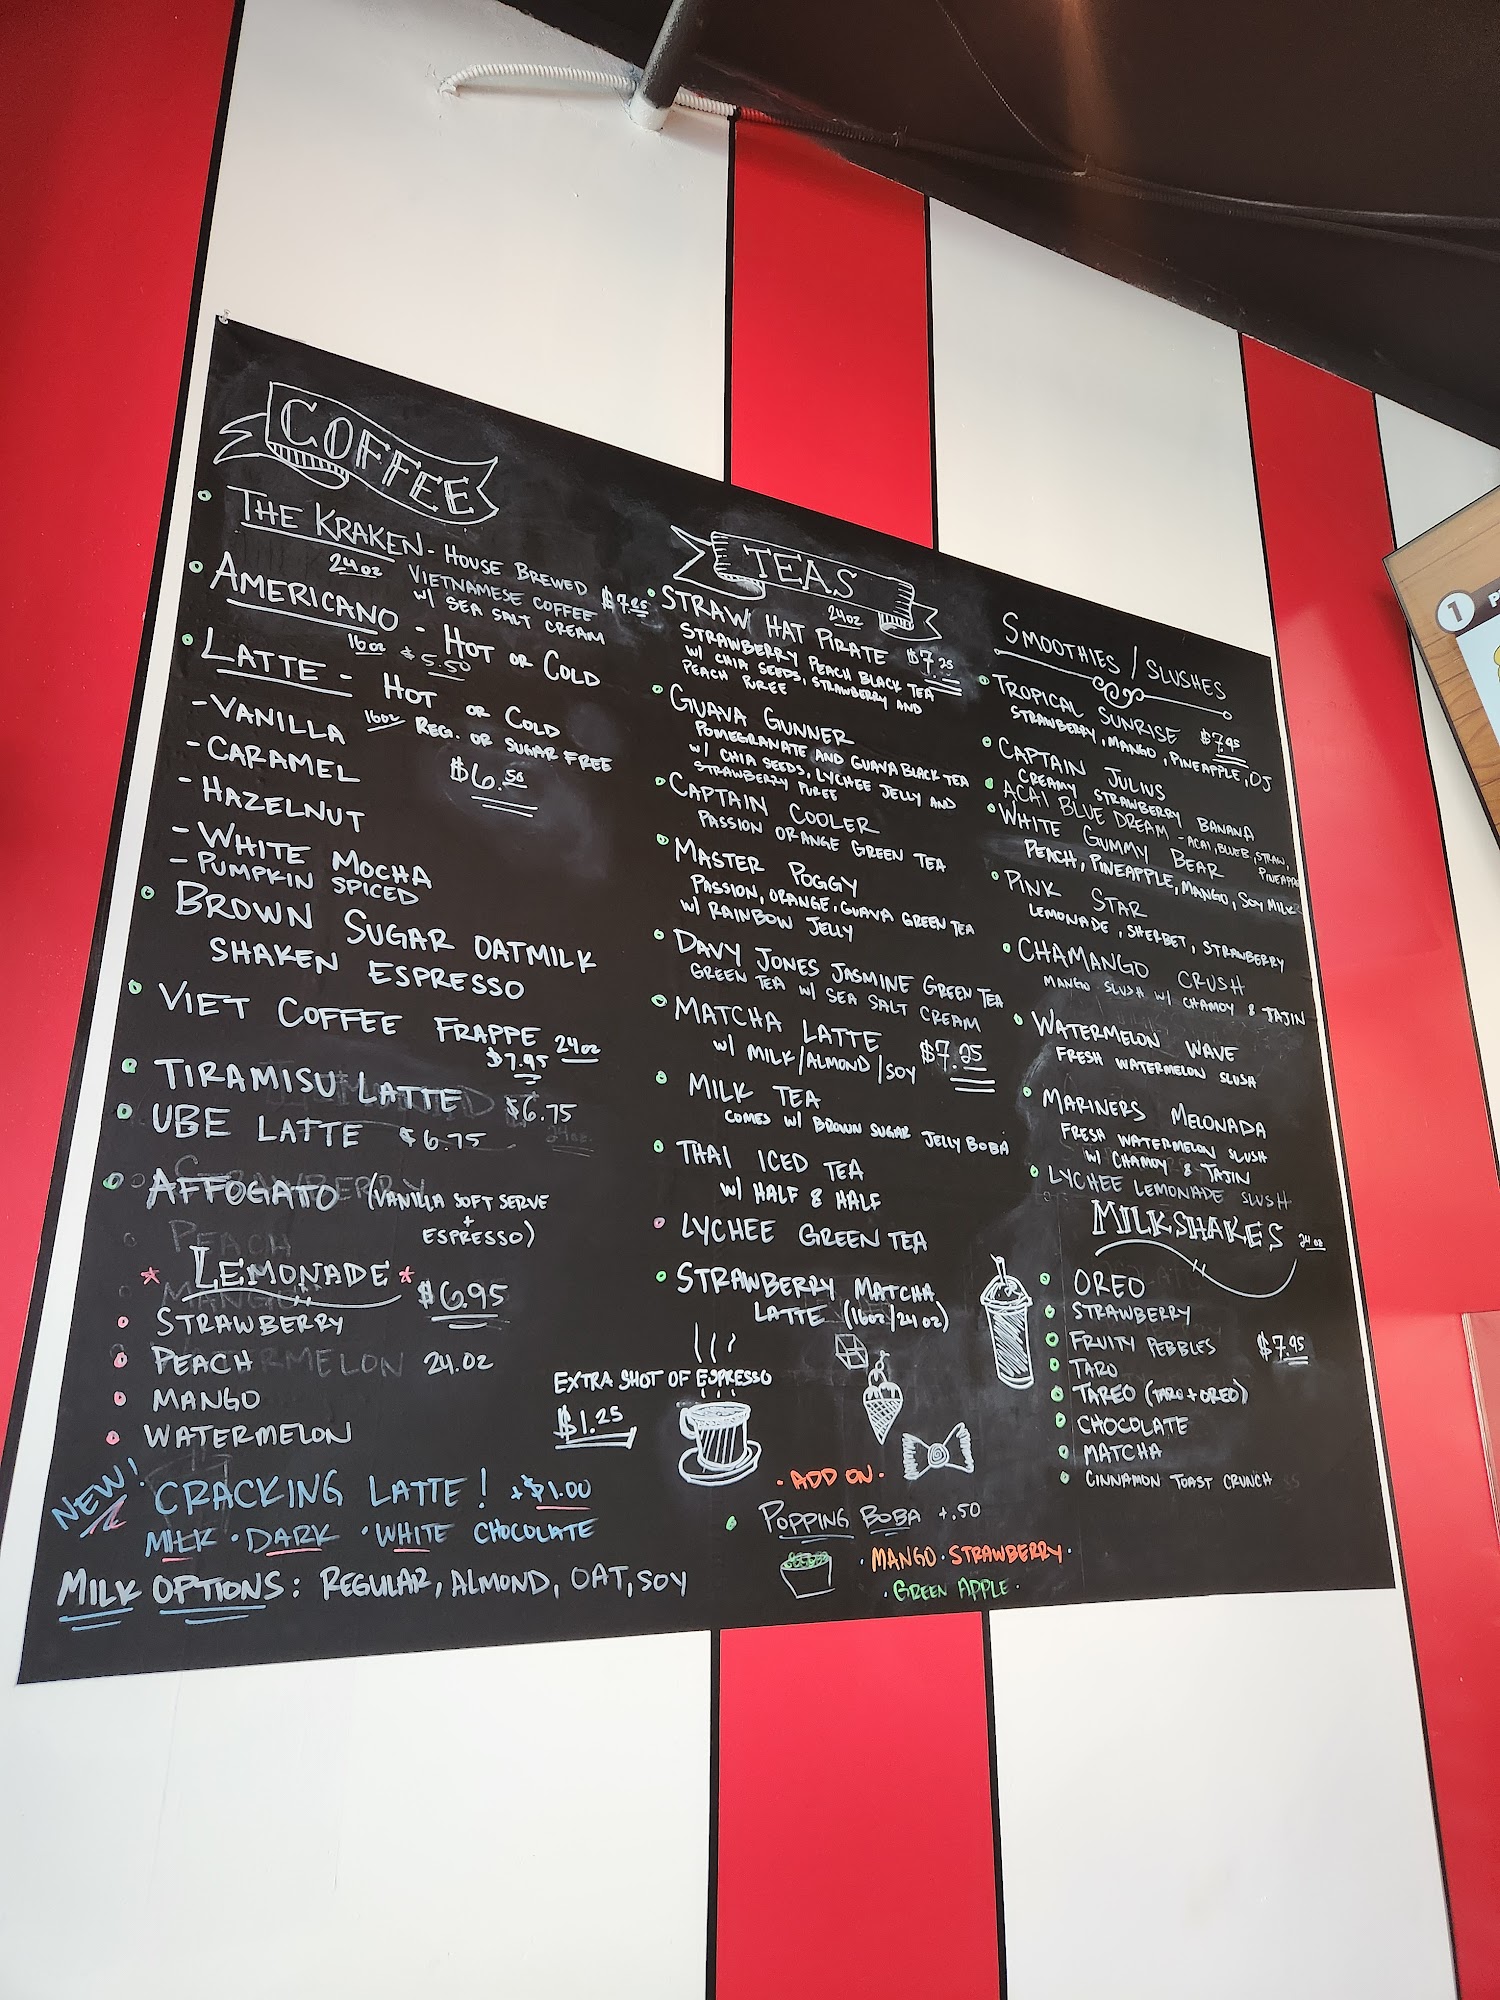 COFFEE
THE KRAKEN - HOUSE BREWED
24oz VIETNAMESE COFFEE $7.25
W/ SEA SALT CREAM
AMERICANO - HOT OR COLD
16oz $5.50
LATTE - HOT OR COLD
16oz REG. OR SUGAR FREE
- VANILLA
$6.50
- CARAMEL
- HAZELNUT
- WHITE MOCHA
- PUMPKIN SPICED
BROWN SUGAR OATMILK
SHAKEN ESPRESSO
VIET COFFEE FRAPPE 24oz
$7.95
TIRAMISU LATTE $6.75
UBE LATTE $6.75
AFFOGATO (VANILLA SOFT SERVE
+
ESPRESSO)
* LEMONADE * $6.95
STRAWBERRY
PEACH 24.OZ
MANGO
WATERMELON
NEW! CRACKING LATTE! +$1.00
MILK · DARK · WHITE CHOCOLATE
MILK OPTIONS: REGULAR, ALMOND, OAT, SOY
EXTRA SHOT OF ESPRESSO
$1.25
TEAS
24oz
STRAW HAT PIRATE $7.25
STRAWBERRY PEACH BLACK TEA
W/ CHIA SEEDS, STRAWBERRY AND
PEACH PUREE
GUAVA GUNNER
POMEGRANATE AND GUAVA BLACK TEA
W/ CHIA SEEDS, LYCHEE JELLY AND
STRAWBERRY PUREE
CAPTAIN COOLER
PASSION ORANGE GREEN TEA
MASTER POGGY
PASSION, ORANGE, GUAVA GREEN TEA
W/ RAINBOW JELLY
DAVY JONES JASMINE GREEN TEA
GREEN TEA W/ SEA SALT CREAM
MATCHA LATTE $7.25
W/ MILK/ALMOND/SOY
MILK TEA
COMES W/ BROWN SUGAR JELLY BOBA
THAI ICED TEA
W/ HALF & HALF
LYCHEE GREEN TEA
STRAWBERRY MATCHA
LATTE (16oz/24oz)
· ADD ON ·
POPPING BOBA +.50
· MANGO · STRAWBERRY ·
· GREEN APPLE ·
SMOOTHIES / SLUSHES
TROPICAL SUNRISE $7.95
STRAWBERRY, MANGO, PINEAPPLE, OJ
CAPTAIN JULIUS
CREAMY STRAWBERRY BANANA
ACAI BLUE DREAM - ACAI, BLUEB, STRAW,
PINEAPP
WHITE GUMMY BEAR
PEACH, PINEAPPLE, MANGO, SOY MILK
PINK STAR
LEMONADE, SHERBET, STRAWBERRY
CHAMANGO CRUSH
MANGO SLUSH W/ CHAMOY & TAJIN
WATERMELON WAVE
FRESH WATERMELON SLUSH
MARINERS MELONADA
FRESH WATERMELON SLUSH
W/ CHAMOY & TAJIN
LYCHEE LEMONADE SLUSH
MILKSHAKES 24oz
OREO
STRAWBERRY
FRUITY PEBBLES $7.95
TARO
TAREO (TARO + OREO)
CHOCOLATE
MATCHA
CINNAMON TOAST CRUNCH
1